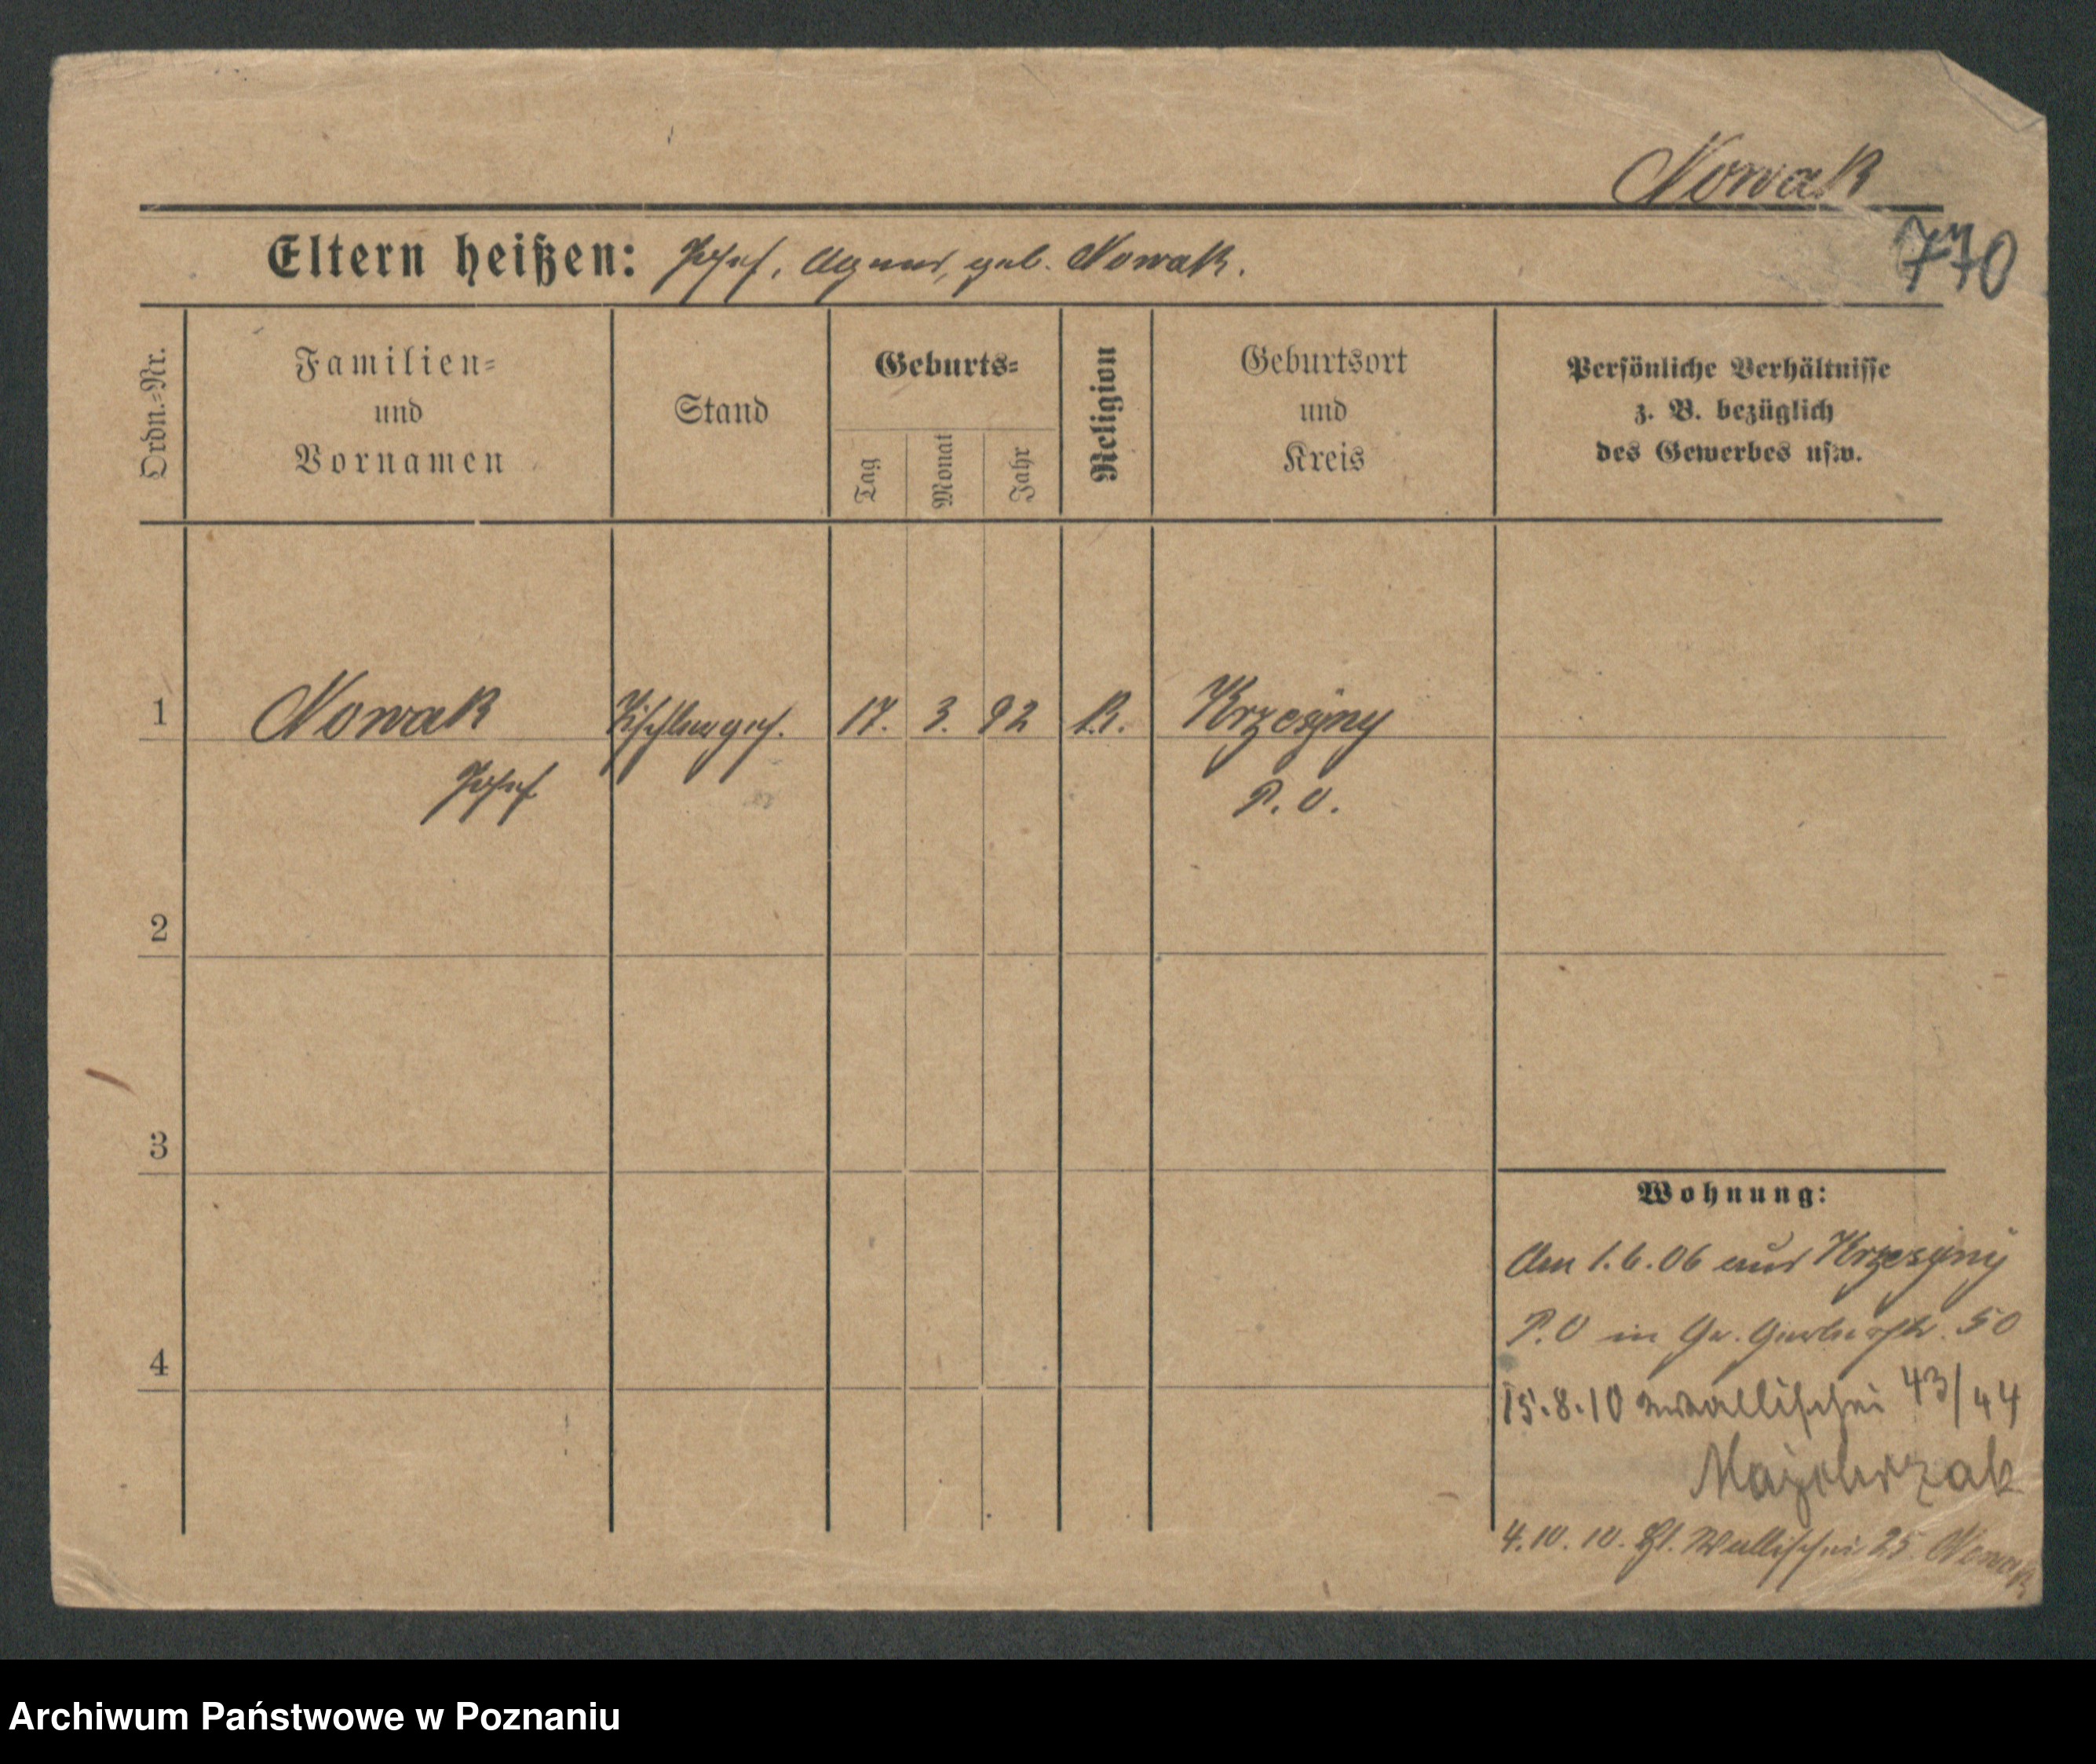 Nowak
Eltern heißen: Josef, Agnes, geb. Nowak.
770
Ordn.=Nr.
Familien=
und
Vornamen
Stand
Geburts=
Tag
Monat
Jahr
Religion
Geburtsort
und
Kreis
Persönliche Verhältnisse
z. B. bezüglich
des Gewerbes usw.
1 Nowak Tischlerges. 17. 3. 92 k. Krzesyny
Josef P. O.
2
3
4
Wohnung:
Am 1.6.06 aus Krzesyny
P.O in Gr. Gerberstr. 50
15.8.10 Wallischei 43/44
Majchrzak
4.10.10. Wallischei 25 Nowak
Archiwum Państwowe w Poznaniu